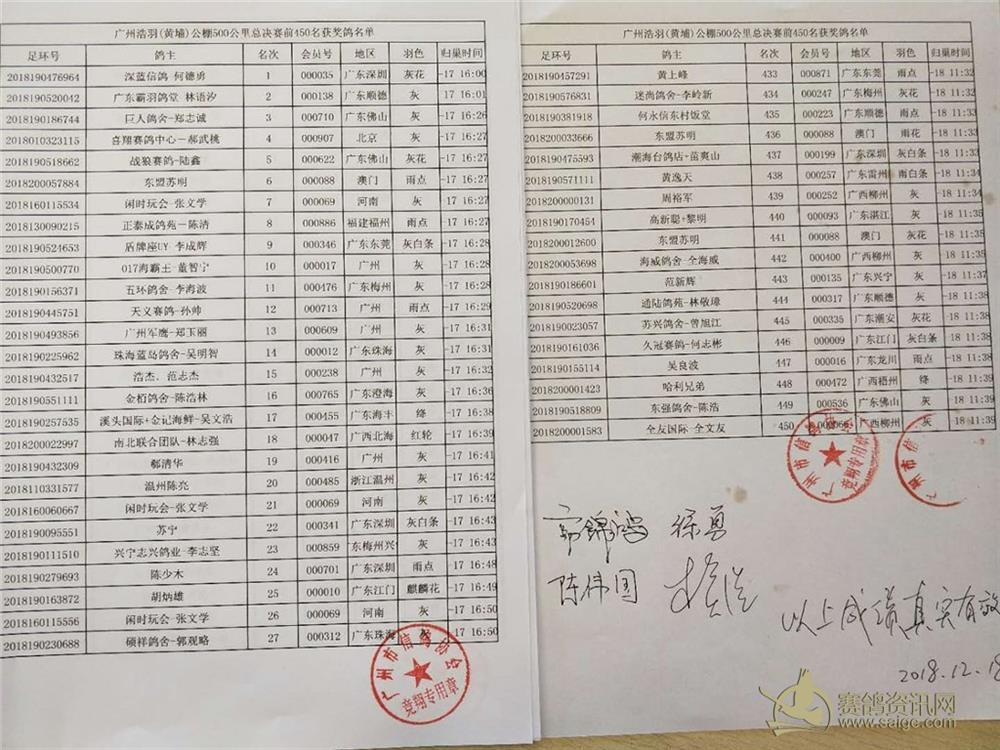 广州浩羽(黄埔)公棚500公里总决赛前450名获奖鸽名单
足环号 鸽主 名次 会员号 地区 羽色 归巢时间
2018190476964 深蓝信鸽-何德勇 1 000035 广东深圳 灰花 -17 16:00
2018190520042 广东霸羽鸽堂-林语汐 2 000138 广东顺德 灰 -17 16:01
2018190186744 巨人鸽舍-郑志诚 3 000710 广东佛山 灰 -17 16:26
2018010323115 喜翔赛鸽中心-郝武桃 4 000907 北京 灰 -17 16:27
2018190518662 战狼赛鸽-陆鑫 5 000622 广东佛山 灰花 -17 16:27
2018200057884 东盟苏明 6 000088 澳门 雨点 -17 16:27
2018160115534 闲时玩会-张文学 7 000069 河南 灰 -17 16:27
2018130090215 正泰成鸽苑-陈清 8 000886 福建福州 雨点 -17 16:27
2018190524653 盾牌座UY-李成辉 9 000346 广东东莞 灰白条 -17 16:28
2018190500770 017海霸王-董智宁 10 000017 广州 灰 -17 16:28
2018190156371 五环鸽舍-李海波 11 000476 广东梅州 灰 -17 16:28
2018190445751 天义赛鸽-孙帅 12 000713 广州 雨点 -17 16:29
2018190493856 广州军鹰-郑玉丽 13 000609 广州 灰 -17 16:31
2018190225962 珠海蓝岛鸽舍-吴明智 14 000012 广东珠海 灰 -17 16:31
2018190432517 浩杰、范志杰 15 000238 广州 灰 -17 16:32
2018190551111 金栢鸽舍-陈浩林 16 000765 广东澄海 灰 -17 16:36
2018190257535 溪头国际+金记海鲜-吴文浩 17 000455 广东海丰 绛 -17 16:38
2018200022997 南北联合团队-林志强 18 000047 广西北海 红轮 -17 16:39
2018190432309 郗清华 19 000416 广州 灰 -17 16:41
2018110331577 温州陈亮 20 000485 浙江温州 灰 -17 16:42
2018160060667 闲时玩会-张文学 21 000069 河南 灰 -17 16:42
2018190095551 苏宁 22 000341 广东深圳 灰白条 -17 16:43
2018190111510 兴宁志兴鸽业-李志坚 23 000859 东梅州兴 灰 -17 16:43
2018190279693 陈少木 24 000701 广东深圳 雨点 -17 16:48
2018190163872 胡炳雄 25 000010 广东江门 麒麟花 -17 16:49
2018160115556 闲时玩会-张文学 26 000069 河南 灰 -17 16:49
2018190230688 硕祥鸽舍-郭观略 27 000312 广东珠海 灰 -17 16:50
广州市信鸽协会
竞翔专用章
广州浩羽(黄埔)公棚500公里总决赛前450名获奖鸽名单
足环号 鸽主 名次 会员号 地区 羽色 归巢时间
2018190457291 黄上峰 433 000871 广东东莞 雨点 -18 11:32
2018190576831 迷尚鸽舍-李岭新 434 000247 广东梅州 灰花 -18 11:32
2018190381918 何永信东村饭堂 435 000223 广东顺德 雨点 -18 11:33
2018200033666 东盟苏明 436 000088 澳门 雨花 -18 11:33
2018190475593 潮海台鸽店+苗爽山 437 000199 广东深圳 灰白条 -18 11:33
2018190571111 黄逸天 438 000257 广东雷州 雨白条 -18 11:34
2018200000131 周裕军 439 000252 广西柳州 灰 -18 11:34
2018190170454 高新聪+黎明 440 000093 广东湛江 灰 -18 11:35
2018200012600 东盟苏明 441 000088 澳门 灰花 -18 11:35
2018200053698 海威鸽舍-全海威 442 000400 广西柳州 灰 -18 11:35
2018190186601 范新辉 443 000135 广东兴宁 灰 -18 11:37
2018190520698 通陆鸽苑-林敬璋 444 000317 广东顺德 灰 -18 11:38
2018190023057 苏兴鸽舍-曾旭江 445 000335 广东潮安 灰花 -18 11:38
2018190161036 久冠赛鸽-何志彬 446 000009 广东江门 灰白条 -18 11:38
2018190155114 吴良波 447 000016 广东龙川 雨点 -18 11:38
2018200001423 哈利兄弟 448 000472 广西梧州 绛 -18 11:39
2018190518809 东强鸽舍-陈浩 449 000536 广东佛山 灰 -18 11:39
2018200001583 全友国际-全文友 450 000066 广西柳州 灰 -18 11:39
广州市信鸽协会
竞翔专用章
广州市信
徐勇
陈伟国
以上成绩真实有效
2018.12.18
赛鸽资讯网
www.saige.com